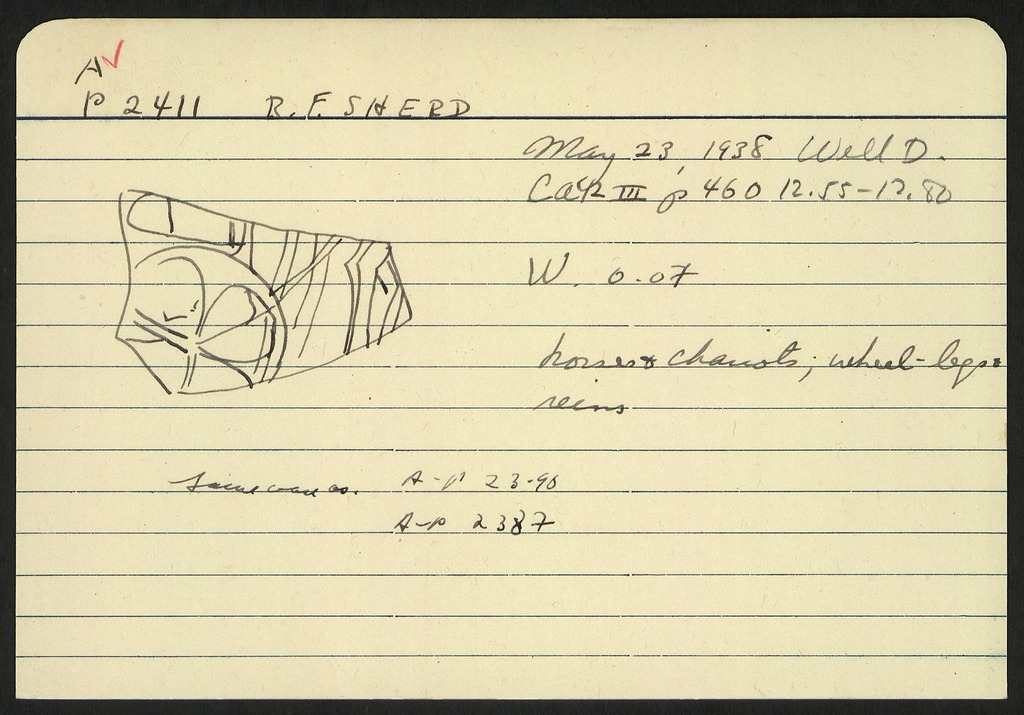 A ✓
P 2411 R. F. SHERD
May 23, 1938 Well D.
III p 460 12.55-12.80
W. 0.07
horses & chariots; wheel-legs &
reins
same vase as. A-P 23-90
A-P 2387